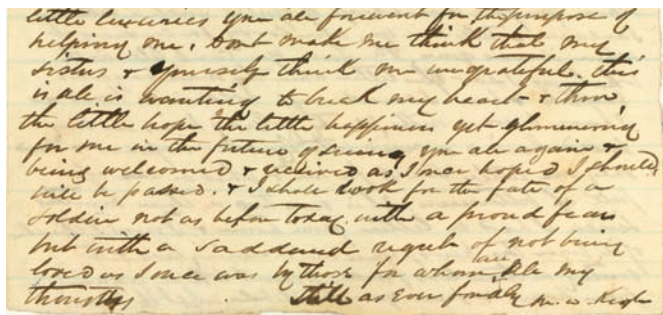 little luxuries you all forewent for the purpose of
helping me. Dont make me think that my
sisters & yourself think me ungrateful. this
is all is wanting to break my heart & then
the little hope the little happiness yet glimmering
for me in the future of seeing you all again &
being welcomed & received as I once hoped I should
will be passed. & I shall look for the fate of a
soldier not as before today with a proud fear
but with a saddened regret of not being
loved as I once was by those for whom are all my
thoughts Still as Ever fondly M. W.